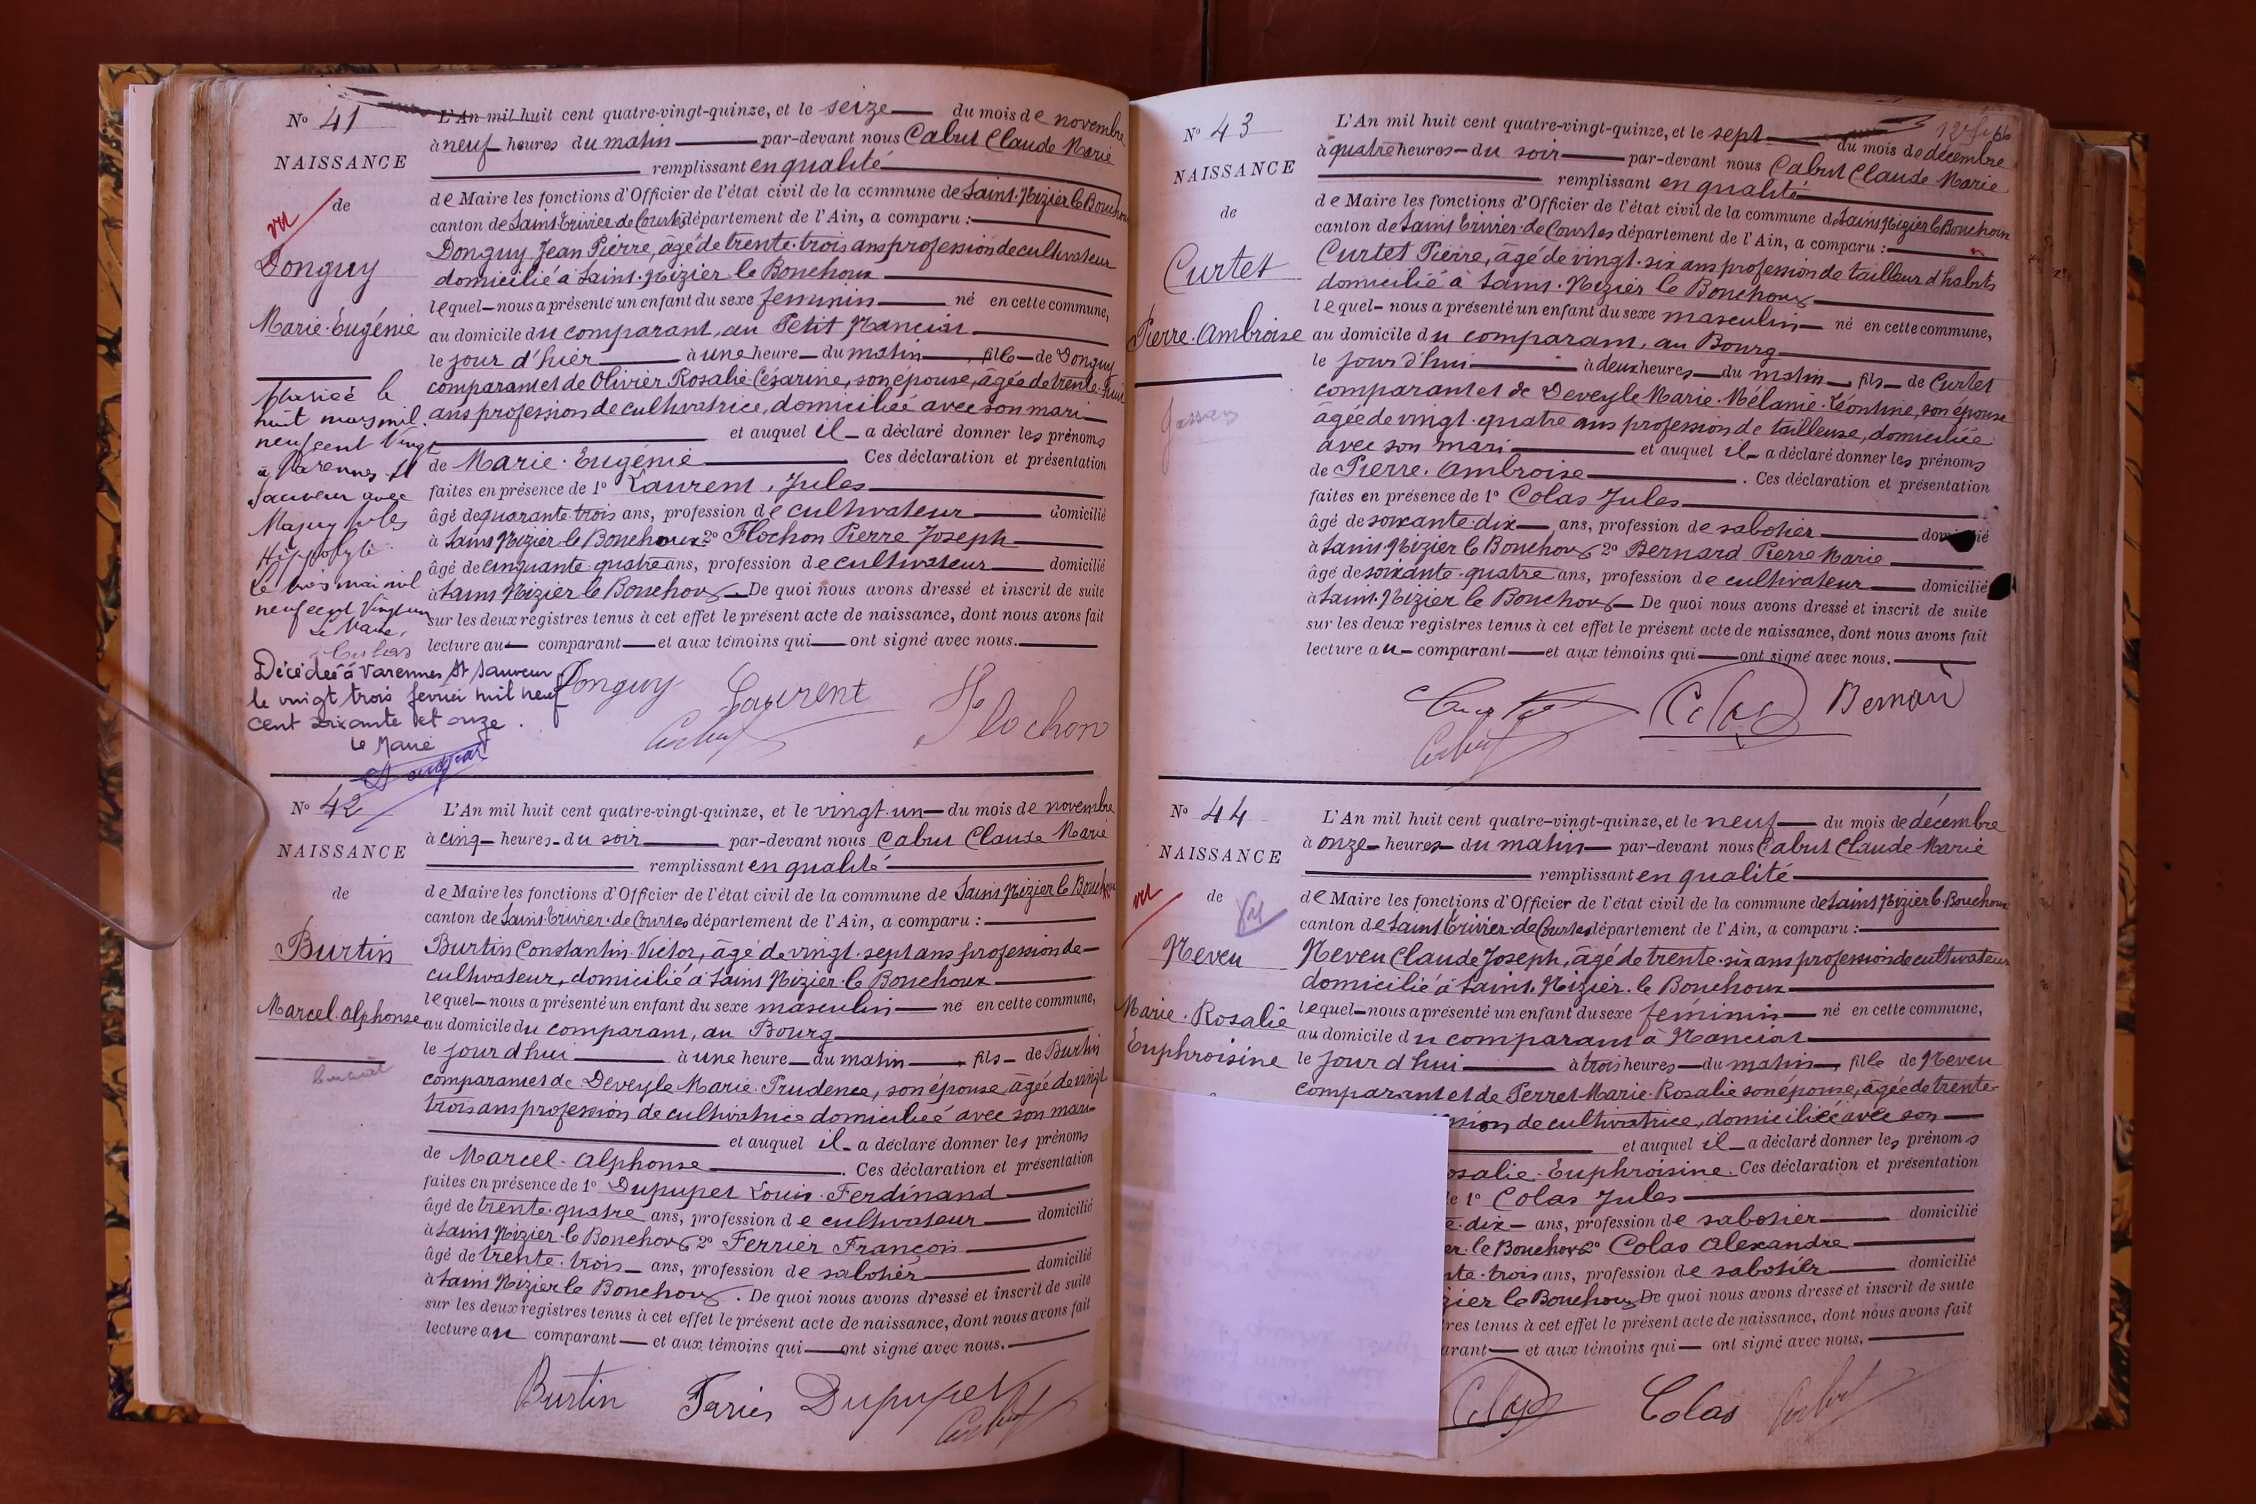 N° 41
NAISSANCE
de
vu
Donguy
Marie-Eugénie
Mariée le
huit mars mil
neuf cent vingt
à Varennes St
Sauveur avec
Maguy Jules
Hippolyte
le trois mai mil
neuf cent vingt un
Le Maire,
Décédée à Varennes St Sauveur
le vingt trois février mil neuf
cent soixante et onze.
Le Maire
L'An mil huit cent quatre-vingt-quinze, et le seize du mois de novembre
à neuf heures du matin par-devant nous Cabut Claude Marie
remplissant en qualité
de Maire les fonctions d'Officier de l'état civil de la commune de Saint-Nizier le Bouchoux
canton de Saint Trivier de Courtes département de l'Ain, a comparu :
Donguy Jean Pierre, âgé de trente-trois ans profession de cultivateur
domicilié à Saint-Nizier le Bouchoux
lequel nous a présenté un enfant du sexe féminin né en cette commune,
au domicile du comparant, au Petit Nanciat
le jour d'hier à une heure du matin, fille de Donguy
comparant et de Olivier Rosalie Césarine, son épouse, âgée de trente-huit
ans profession de cultivatrice, domiciliée avec son mari
et auquel il a déclaré donner les prénoms
de Marie-Eugénie Ces déclaration et présentation
faites en présence de 1° Laurent, Jules
âgé de quarante-trois ans, profession de cultivateur domicilié
à Saint Nizier le Bouchoux 2° Flochon Pierre Joseph
âgé de cinquante-quatre ans, profession de cultivateur domicilié
à Saint Nizier le Bouchoux. De quoi nous avons dressé et inscrit de suite
sur les deux registres tenus à cet effet le présent acte de naissance, dont nous avons fait
lecture au comparant et aux témoins qui ont signé avec nous.
Donguy Laurent Flochon
Cabut
N° 42
NAISSANCE
de
Burtin
Marcel-Alphonse
L'An mil huit cent quatre-vingt-quinze, et le vingt-un du mois de novembre
à cinq heures du soir par-devant nous Cabut Claude Marie
remplissant en qualité
de Maire les fonctions d'Officier de l'état civil de la commune de Saint Nizier le Bouchoux
canton de Saint-Trivier-de-Courtes département de l'Ain, a comparu :
Burtin Constantin Victor, âgé de vingt-sept ans profession de
cultivateur, domicilié à Saint Nizier-le Bouchoux
lequel nous a présenté un enfant du sexe masculin né en cette commune,
au domicile du comparant, au Bourg
le jour d'hui à une heure du matin, fils de Burtin
comparant et de Deveyle Marie-Prudence, son épouse âgée de vingt
trois ans profession de cultivatrice domiciliée avec son mari
et auquel il a déclaré donner les prénoms
de Marcel-Alphonse. Ces déclaration et présentation
faites en présence de 1° Dupupet Louis-Ferdinand
âgé de trente-quatre ans, profession de cultivateur domicilié
à Saint Nizier-le Bouchoux 2° Ferrier François
âgé de trente-trois ans, profession de sabotier domicilié
à Saint Nizier le Bouchoux. De quoi nous avons dressé et inscrit de suite
sur les deux registres tenus à cet effet le présent acte de naissance, dont nous avons fait
lecture au comparant et aux témoins qui ont signé avec nous.
Burtin Dupupet
Cabut
N° 43
NAISSANCE
de
Curtet
Pierre-Ambroise
L'An mil huit cent quatre-vingt-quinze, et le sept du mois de décembre
à quatre heures du soir par-devant nous Cabut Claude Marie
remplissant en qualité
de Maire les fonctions d'Officier de l'état civil de la commune de Saint Nizier le Bouchoux
canton de Saint Trivier-de-Courtes département de l'Ain, a comparu :
Curtet Pierre, âgé de vingt-six ans profession de tailleur d'habits
domicilié à Saint-Nizier le Bouchoux
lequel nous a présenté un enfant du sexe masculin né en cette commune,
au domicile du comparant, au Bourg
le jour d'hui à deux heures du matin, fils de Curtet
comparant et de Deveyle Marie-Mélanie-Léontine, son épouse
âgée de vingt-quatre ans profession de tailleuse, domiciliée
avec son mari et auquel il a déclaré donner les prénoms
de Pierre-Ambroise. Ces déclaration et présentation
faites en présence de 1° Colas Jules
âgé de soixante-dix ans, profession de sabotier domicilié
à Saint Nizier le Bouchoux 2° Bernard Pierre Marie
âgé de soixante-quatre ans, profession de cultivateur domicilié
à Saint-Nizier le Bouchoux De quoi nous avons dressé et inscrit de suite
sur les deux registres tenus à cet effet le présent acte de naissance, dont nous avons fait
lecture au comparant et aux témoins qui ont signé avec nous.
Curtet Colas Bernard
Cabut
N° 44
NAISSANCE
vu
de
Vu
Neveu
Marie-Rosalie
Euphroisine
L'An mil huit cent quatre-vingt-quinze, et le neuf du mois de décembre
à onze heures du matin par-devant nous Cabut Claude Marie
remplissant en qualité
de Maire les fonctions d'Officier de l'état civil de la commune de Saint Nizier le Bouchoux
canton de Saint Trivier-de-Courtes département de l'Ain, a comparu :
Neveu Claude Joseph, âgé de trente-six ans profession de cultivateur
domicilié à Saint-Nizier-le Bouchoux
lequel nous a présenté un enfant du sexe féminin né en cette commune,
au domicile du comparant à Nanciat
le jour d'hui à trois heures du matin, fille de Neveu
comparant et de Perret Marie-Rosalie son épouse, âgée de trente
ssion de cultivatrice, domiciliée avec son
et auquel il a déclaré donner les prénoms
osalie-Euphroisine. Ces déclaration et présentation
e 1° Colas Jules
e-dix ans, profession de sabotier domicilié
er-le Bouchoux 2° Colas Alexandre
nte-trois ans, profession de sabotier domicilié
zier le Bouchoux De quoi nous avons dressé et inscrit de suite
tres tenus à cet effet le présent acte de naissance, dont nous avons fait
arant et aux témoins qui ont signé avec nous.
Colas Colas Cabut